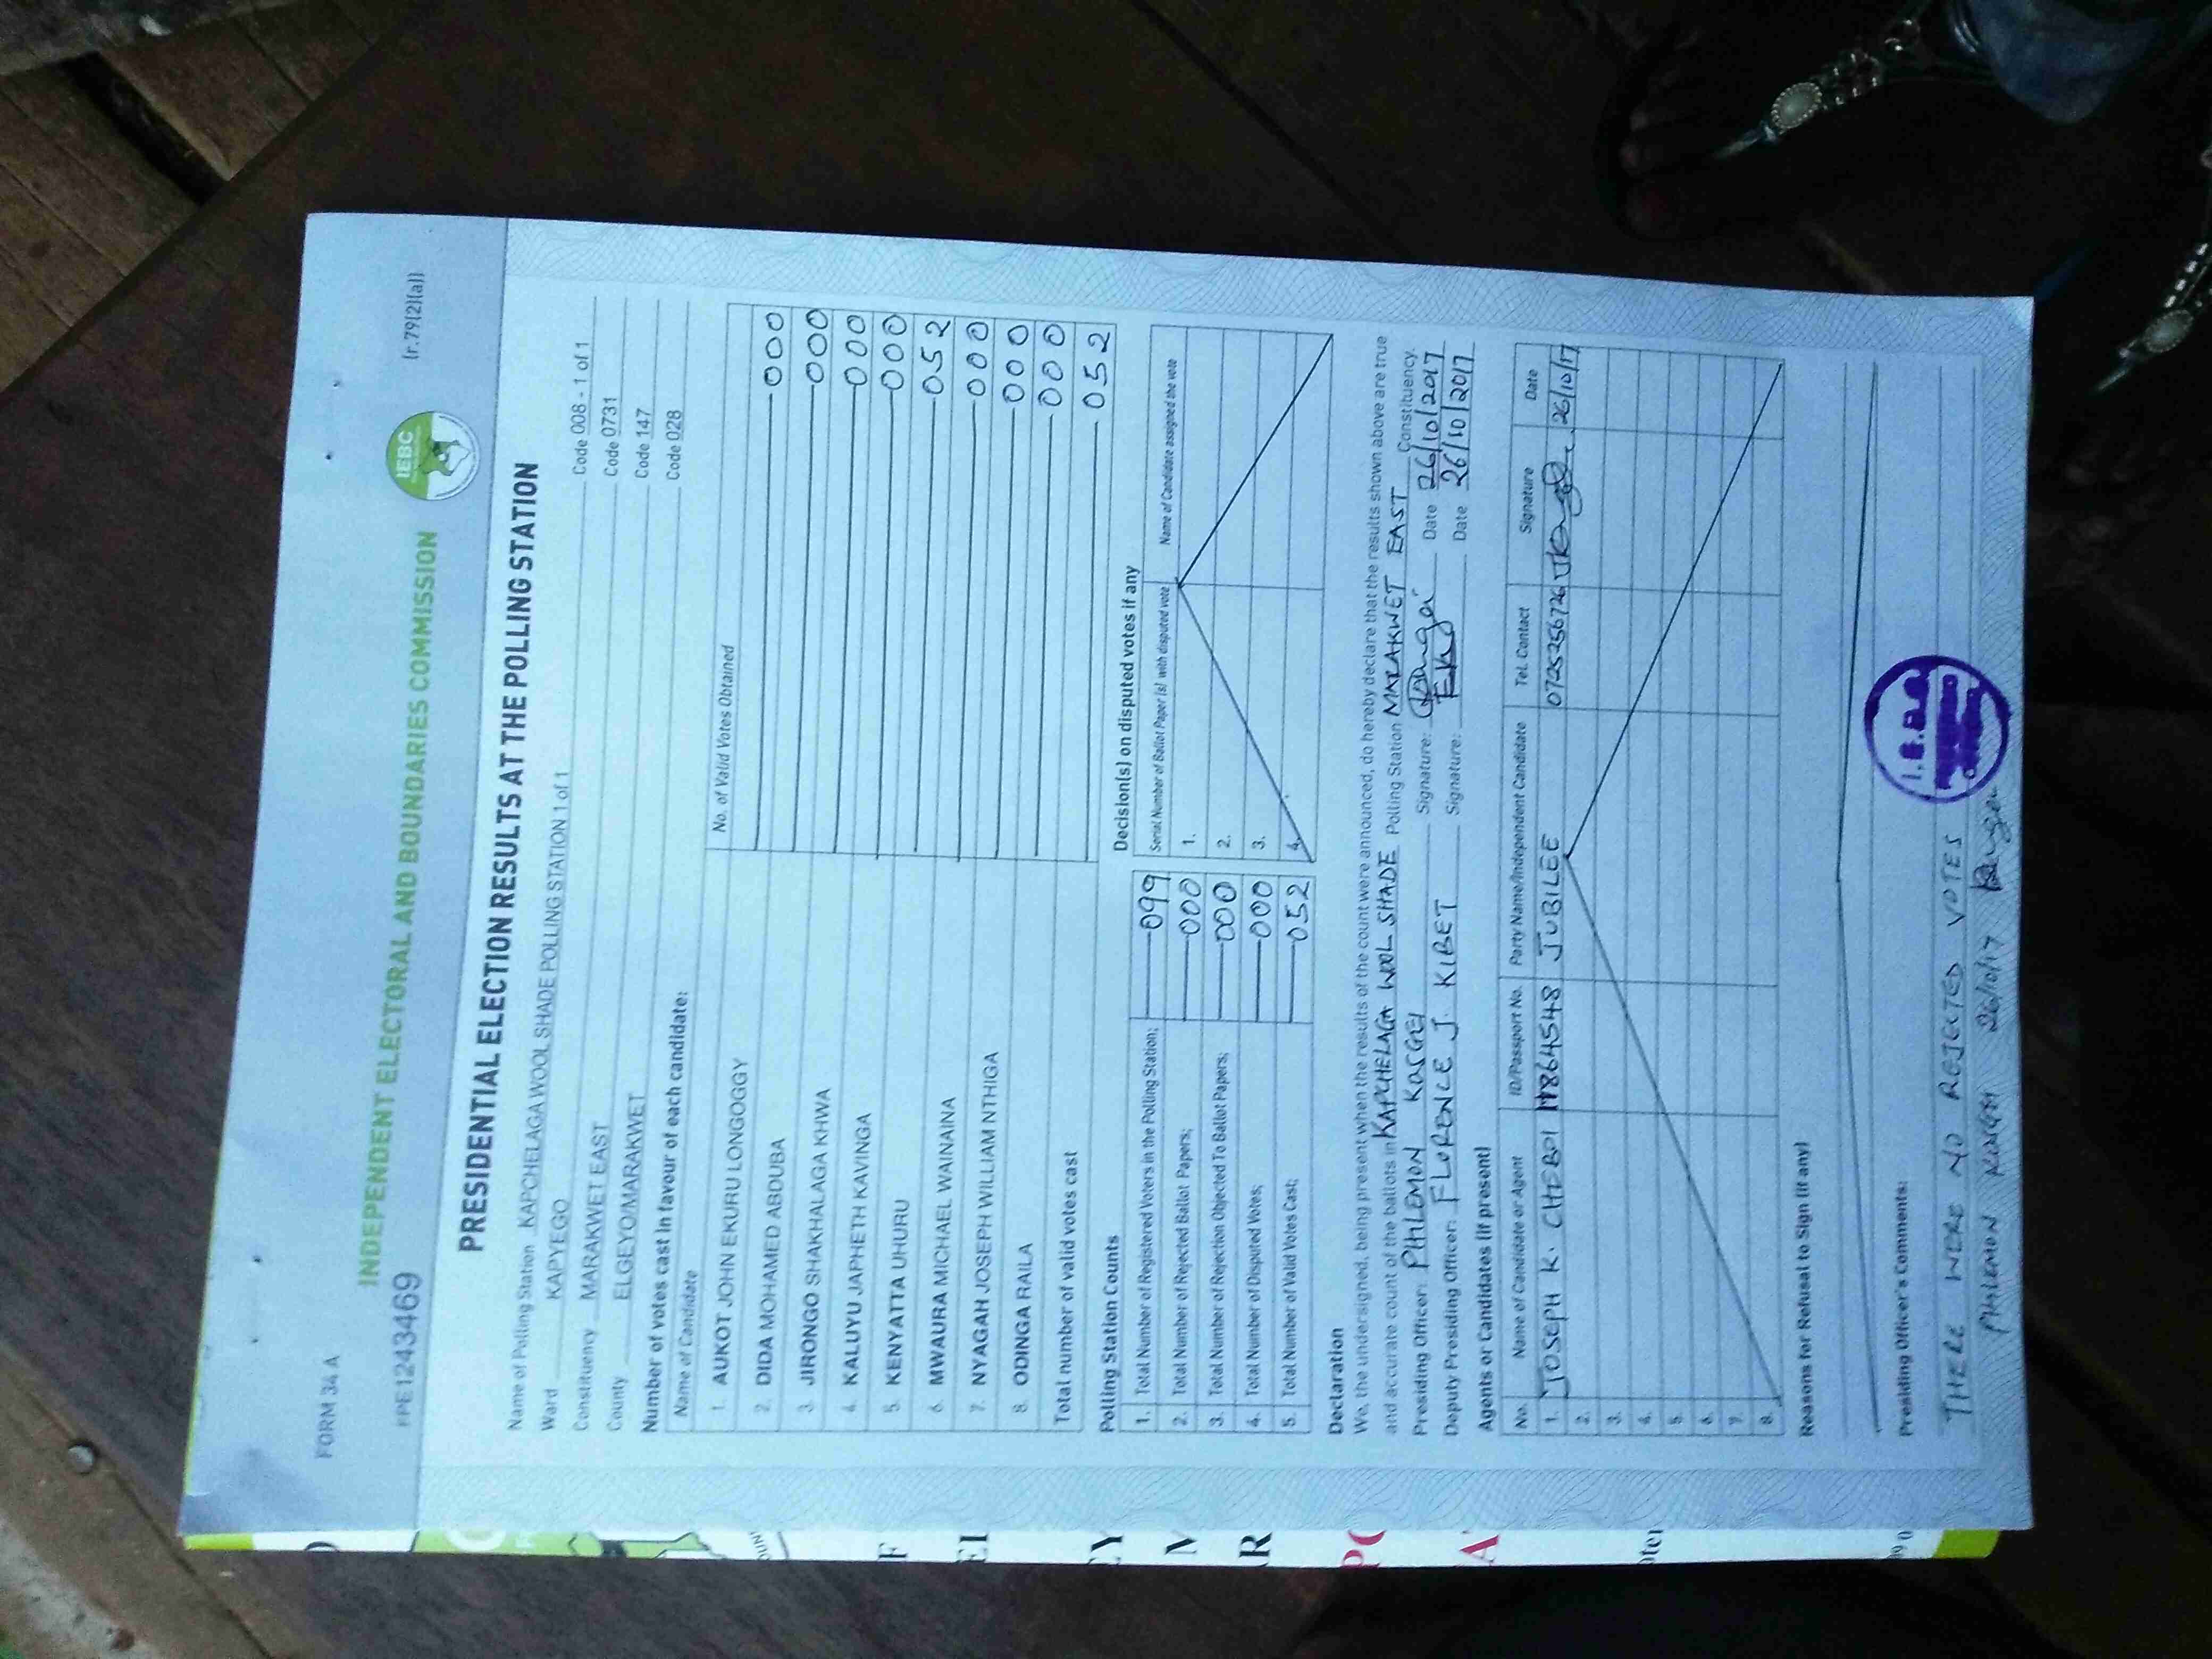 FORM 34A
(r.79(2)(a))
PE1243469
INDEPENDENT ELECTORAL AND BOUNDARIES COMMISSION
IEBC
PRESIDENTIAL ELECTION RESULTS AT THE POLLING STATION
Name of Polling Station KAPCHELAGA WOOL SHADE POLLING STATION 1 of 1 Code 008 - 1 of 1
Ward KAPYEGO Code 0731
Constituency MARAKWET EAST Code 147
County ELGEYO/MARAKWET Code 028
Number of votes cast in favour of each candidate:
Name of Candidate No. of Valid Votes Obtained
1. AUKOT JOHN EKURU LONGOGGY 000
2. DIDA MOHAMED ABDUBA 000
3. JIRONGO SHAKHALAGA KHWA 000
4. KALUYU JAPHETH KAVINGA 000
5. KENYATTA UHURU 052
6. MWAURA MICHAEL WAINAINA 000
7. NYAGAH JOSEPH WILLIAM NTHIGA 000
8. ODINGA RAILA 000
Total number of valid votes cast 052
Polling Station Counts
1. Total Number of Registered Voters in the Polling Station; 099
2. Total Number of Rejected Ballot Papers; 000
3. Total Number of Rejection Objected To Ballot Papers; 000
4. Total Number of Disputed Votes; 000
5. Total Number of Valid Votes Cast; 052
Decision(s) on disputed votes if any
Serial Number of Ballot Paper (s) with disputed vote Name of Candidate assigned the vote
1.
2.
3.
4.
Declaration
We, the undersigned, being present when the results of the count were announced, do hereby declare that the results shown above are true
and accurate count of the ballots in KAPCHELAGA WOOL SHADE Polling Station MARAKWET EAST Constituency.
Presiding Officer: PHILEMON Signature: Date 26/10/2017
Deputy Presiding Officer: FLORENCE J. KIBET Signature: Date 26/10/2017
Agents or Candidates (if present)
No. Name of Candidate or Agent ID/Passport No. Party Name/Independent Candidate Tel. Contact Signature Date
1. JOSEPH K. CHEBOI 11864548 JUBILEE 0725256726 26/10/17
2.
3.
4.
5.
6.
7.
8.
Reasons for Refusal to Sign (if any)
Presiding Officer's Comments:
THERE WERE NO REJECTED VOTES
PHILEMON 26/10/17
I.E.B.C